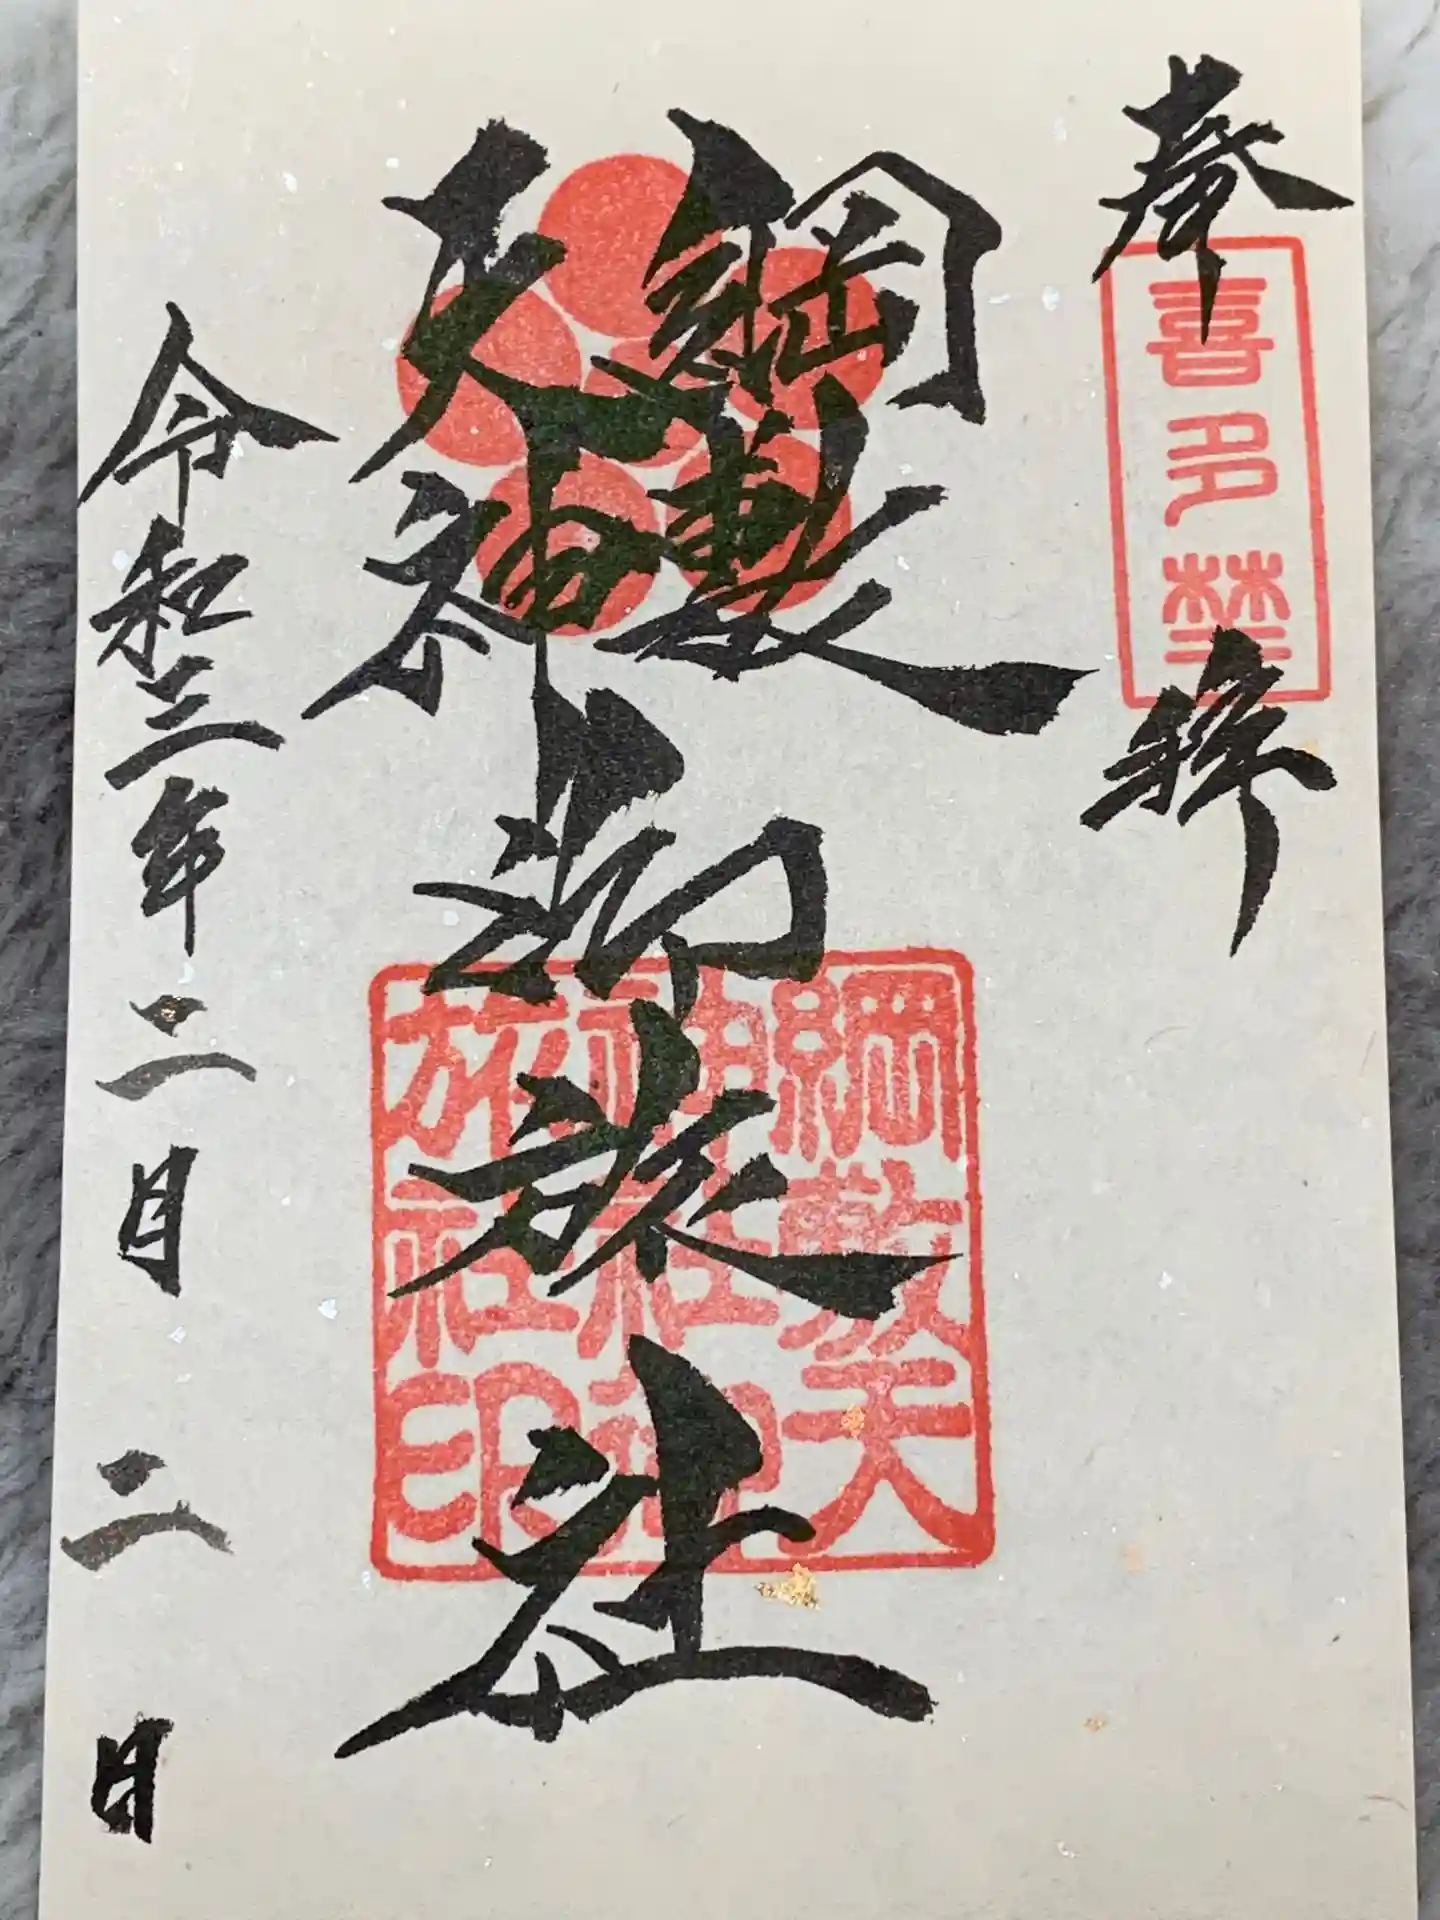 奉拝
喜多埜
綱敷
天神
御旅社
綱敷天
神社御
旅社印
令和三年二月二日